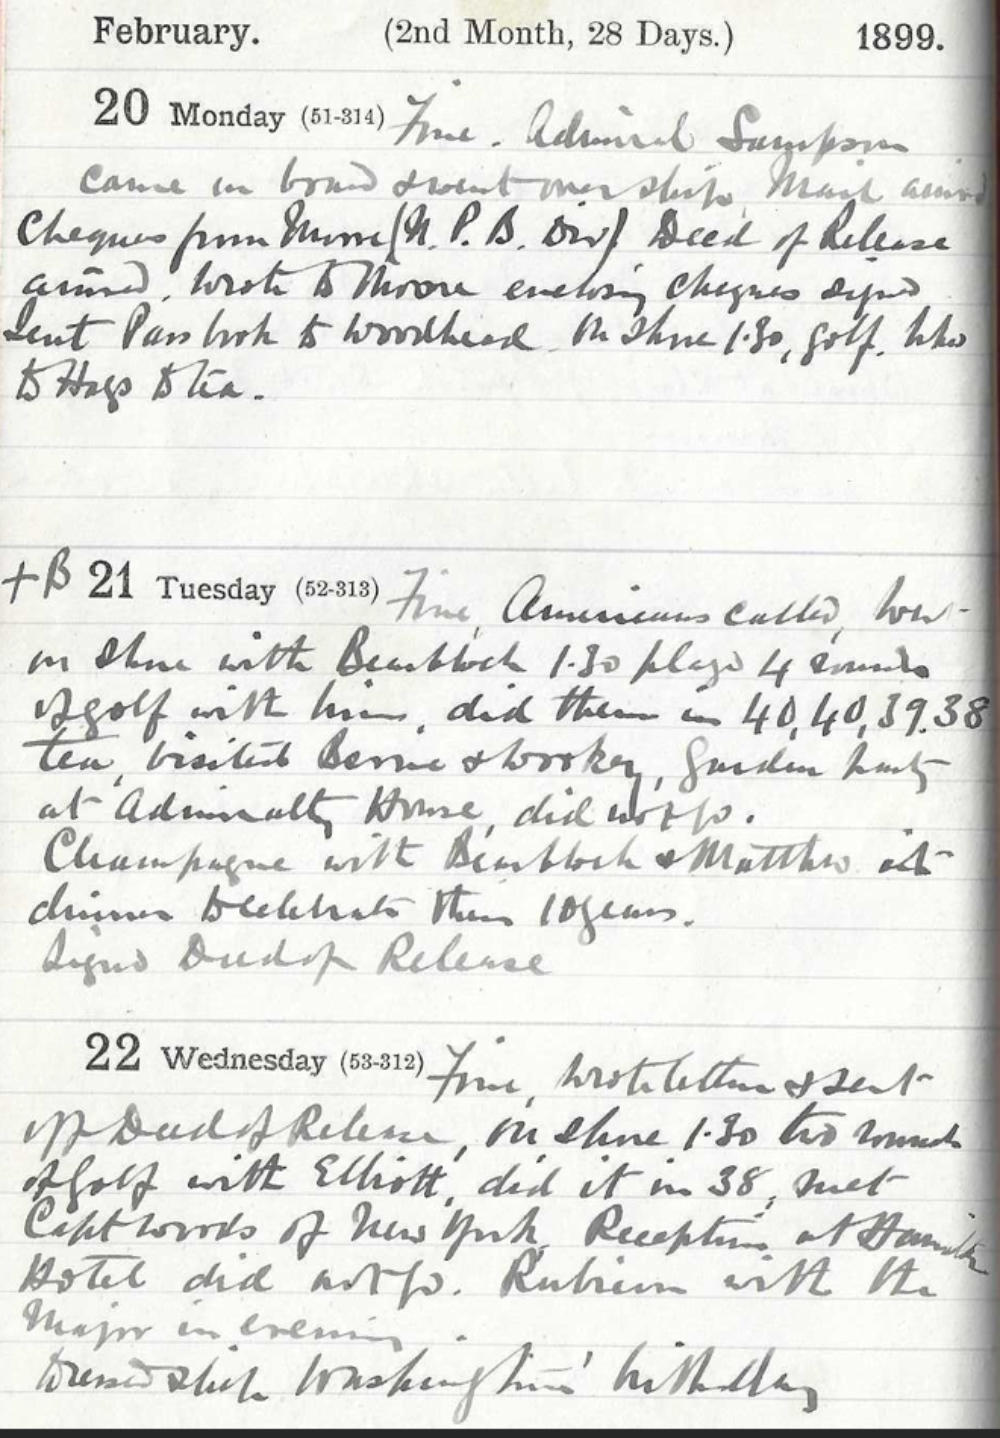 February. (2nd Month, 28 Days.) 1899.
20 Monday (51-314) Fine. Admiral Sampson
came on board & went over ship, Mail arrived
Cheques from Moore (N. P. B. Div). Deed of Release
arrived, wrote to Moore enclosing cheques signed
Sent Pass book to Woodhead on shore 1.30, golf.
to Hags to tea.
+ B 21 Tuesday (52-313) Fine, Americans called,
on shore with Bearblock 1.30 played 4 rounds
of golf with him, did them in 40, 40, 39. 38
tea, visited & Wookey, Garden party
at Admiralty House, did not go.
Champagne with Bearblock & Matthew at
dinner to celebrate their 10 years.
Signed Deed of Release
22 Wednesday (53-312) Fine, wrote letters & sent
off Deed of Release, on shore 1.30 two rounds
of golf with Elliott, did it in 38, met
Capt Woods of New York, Reception at Hamilton
Hotel did not go. Rubicon with the
Major in evening.
Dressed ship Washington's birthday